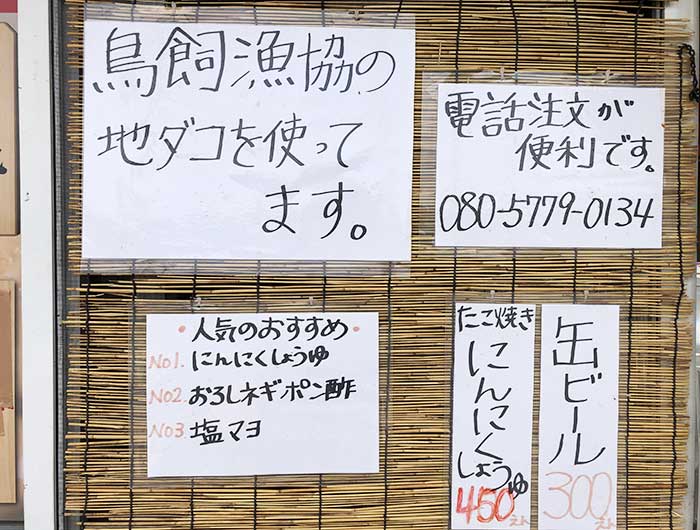 鳥飼漁協の
地ダコを使って
ます。
電話注文が
便利です。
080-5779-0134
・人気のおすすめ・
No1. にんにくしょうゆ
No2. おろしネギポン酢
No3. 塩マヨ
たこ焼き
にんにくしょうゆ
450えん
缶ビール
300えん